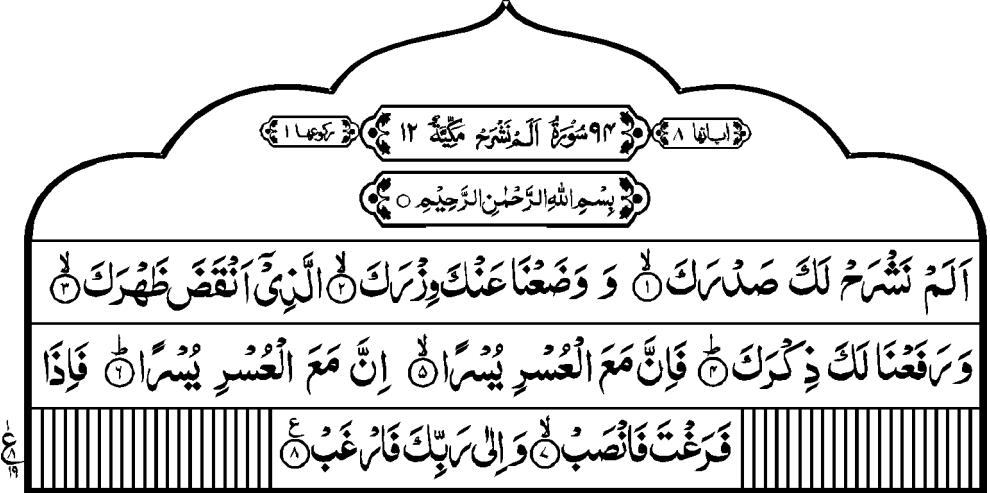 اٰیاتها ۸ ۹۴ سُوْرَةُ اَلَمْ نَشْرَحْ مَکِّیَّةٌ ۱۲ رکوعها ۱
بِسْمِ اللّٰهِ الرَّحْمٰنِ الرَّحِیْمِ ○
اَلَمْ نَشْرَحْ لَكَ صَدْرَكَ ۙ﴿۱﴾ وَ وَضَعْنَا عَنْكَ وِزْرَكَ ۙ﴿۲﴾ الَّذِیْۤ اَنْقَضَ ظَهْرَكَ ۙ﴿۳﴾
وَ رَفَعْنَا لَكَ ذِكْرَكَ ؕ﴿۴﴾ فَاِنَّ مَعَ الْعُسْرِ یُسْرًا ۙ﴿۵﴾ اِنَّ مَعَ الْعُسْرِ یُسْرًا ؕ﴿۶﴾ فَاِذَا
فَرَغْتَ فَانْصَبْ ۙ﴿۷﴾ وَ اِلٰی رَبِّكَ فَارْغَبْ ﴿۸﴾ ع
ع
۸
۱۹